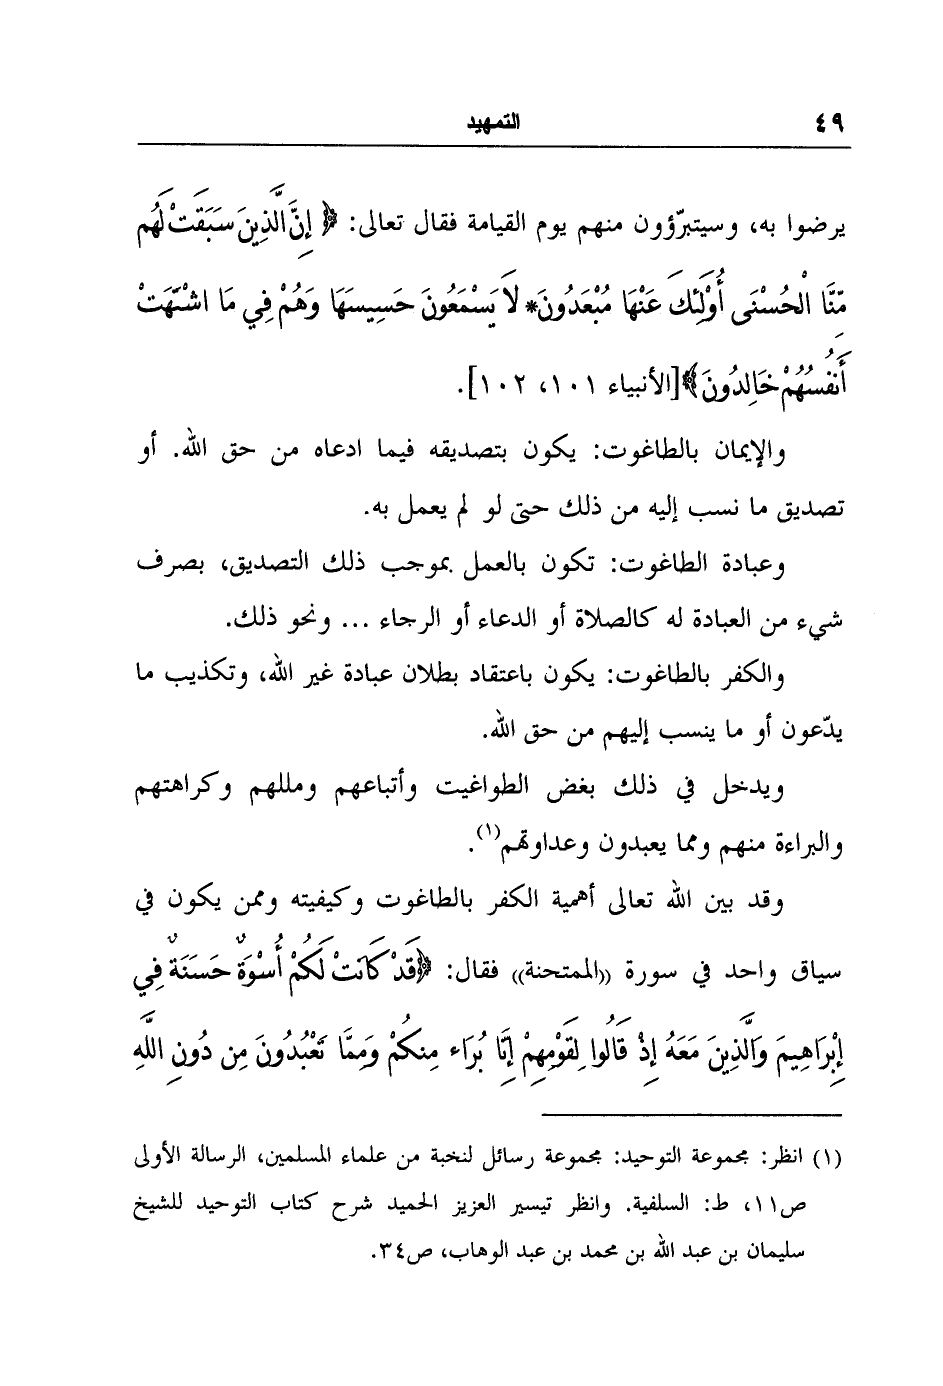 ٤٩ التمهيد
يرضوا به، وسيتبرّؤون منهم يوم القيامة فقال تعالى: ﴿إِنَّ الَّذِينَ سَبَقَتْ لَهُم
مِّنَّا الْحُسْنَى أُوْلَئِكَ عَنْهَا مُبْعَدُونَ* لَا يَسْمَعُونَ حَسِيسَهَا وَهُمْ فِي مَا اشْتَهَتْ
أَنفُسُهُمْ خَالِدُونَ﴾[الأنبياء ١٠١، ١٠٢].
والإيمان بالطاغوت: يكون بتصديقه فيما ادعاه من حق الله. أو
تصديق ما نسب إليه من ذلك حتى لو لم يعمل به.
وعبادة الطاغوت: تكون بالعمل بموجب ذلك التصديق، بصرف
شيء من العبادة له كالصلاة أو الدعاء أو الرجاء ... ونحو ذلك.
والكفر بالطاغوت: يكون باعتقاد بطلان عبادة غير الله، وتكذيب ما
يدّعون أو ما ينسب إليهم من حق الله.
ويدخل في ذلك بغض الطواغيت وأتباعهم ومللهم وكراهتهم
والبراءة منهم ومما يعبدون وعداوتهم(١).
وقد بين الله تعالى أهمية الكفر بالطاغوت وكيفيته وممن يكون في
سياق واحد في سورة ((الممتحنة)) فقال: ﴿قَدْ كَانَتْ لَكُمْ أُسْوَةٌ حَسَنَةٌ فِي
إِبْرَاهِيمَ وَالَّذِينَ مَعَهُ إِذْ قَالُوا لِقَوْمِهِمْ إِنَّا بُرَاء مِنكُمْ وَمِمَّا تَعْبُدُونَ مِن دُونِ اللَّهِ
(١) انظر: مجموعة التوحيد: مجموعة رسائل لنخبة من علماء المسلمين، الرسالة الأولى
ص١١، ط: السلفية. وانظر تيسير العزيز الحميد شرح كتاب التوحيد للشيخ
سليمان بن عبد الله بن محمد بن عبد الوهاب، ص٣٤.